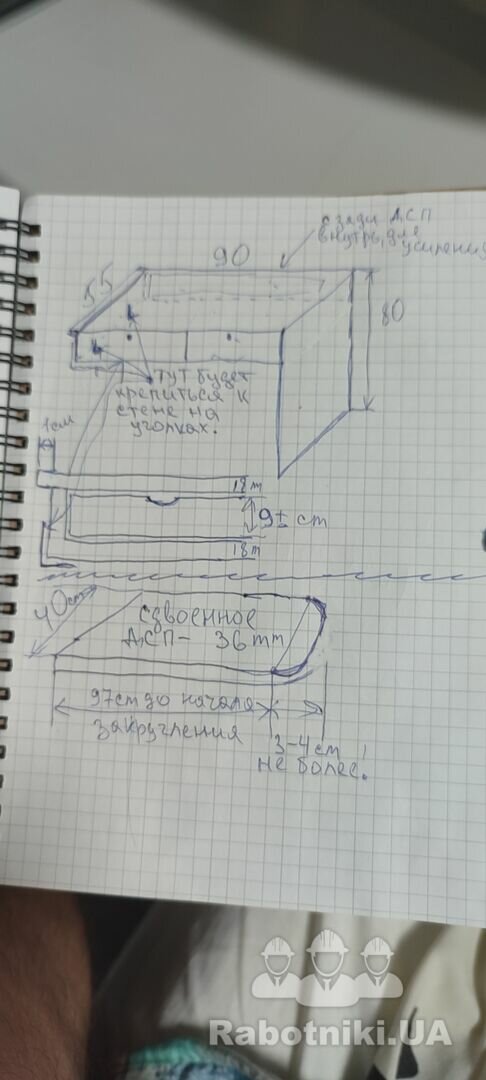 сзади ДСП
внутрь, для
усиления
90
55
80
тут будет
крепиться к
стене на
уголках.
1см
18m
9± cm
18m
40cm
сдвоенное
ДСП- 36mm
97cm до начала
закругления
3-4cm
не более!
Rabotniki.UA